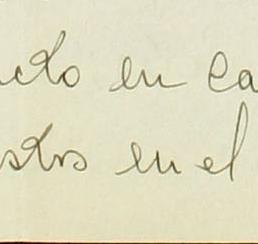 cto en ca
stos en el